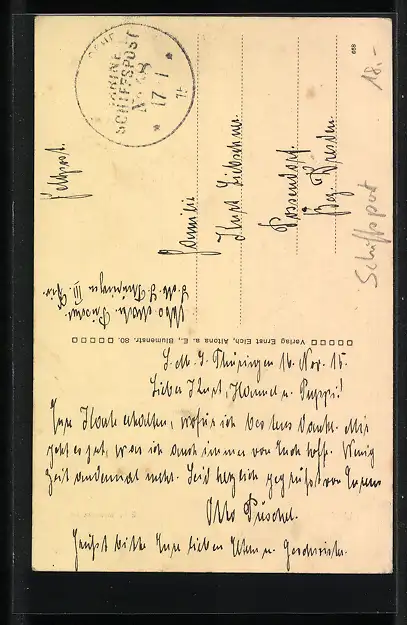 MARINE
SCHIFFSPOST
No 68
* 17 1 *
Feldpost.
Familie
Kurt Liebscher
Possendorf
Bez. Dresden.
Schiffspost
18.-
658
Otto
S.M.S. Thüringen III. Div.
Verlag Ernst Eich, Altona a. E., Blumenstr. 80.
S.M.S. Thüringen 16. Nov. 15.
Lieber Kurt, u. Puppi!
Eure Karte erhalten, wofür ich bestens danke. Mir
geht es gut, was ich auch immer von Euch hoffe. Wenig
Zeit andermal mehr. Seid herzlich gegrüßt von Eurem
Otto Püschel.
Grüßt bitte Eure lieben Eltern u. Geschwister.